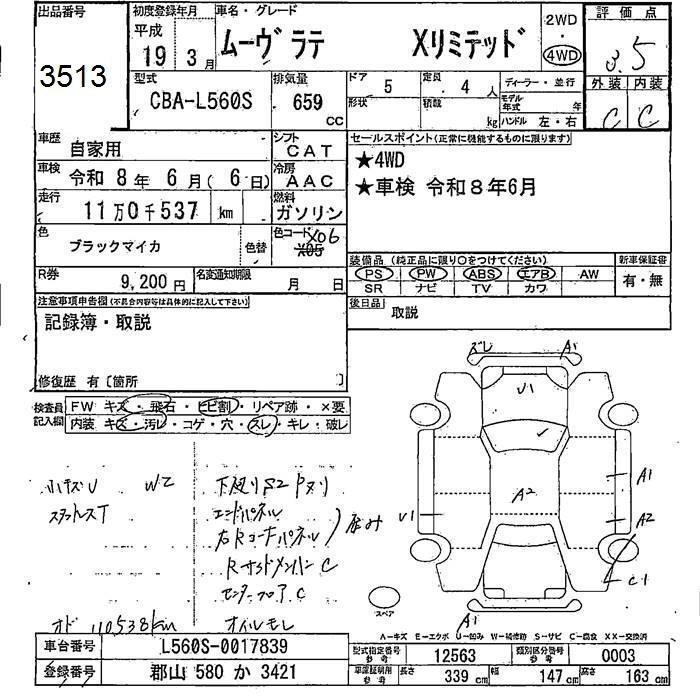 出品番号 初度登録年月 車名・グレード 2WD・4WD 評価点
3513 平成19年3月 ムーヴラテ Xリミテッド 3.5
型式 排気量 ドア 5 定員 4 人 ディーラー・並行 外装 内装
CBA-L560S 659 cc 形状 積載 kg モデル年式 年 ハンドル 左・右 C C
車歴 自家用 シフト CAT セールスポイント(正常に機能するものに限ります)
車検 令和 8年 6月(6日) 冷房 AAC ★4WD
走行 11万0千537 km 燃料 ガソリン ★車検 令和8年6月
色 ブラックマイカ 色替 色コード X06 X05
装備品(純正品に限り○をつけてください) 新車保証書
R券 9,200円 名変通知期限 月 日 PS PW ABS エアB AW 有・無
SR ナビ TV カワ
注意事項申告欄(不具合内容等は具体的に記入して下さい) 後日品 取説
記録簿・取説
修復歴 有〔箇所 〕
検査員記入欄 FW キズ・飛石・ヒビ割・リペア跡・×要
内装 キズ・汚レ・コゲ・穴・スレ・キレ・破レ
ズレ A1
U1
A2
A1
A2
U1
C1
A1
スペア
小キズU W2 下廻りS2
スタッドレスT エンドパネル
右Rコーナーパネル
RサイドメンバーC
センターフロアC
オド 110538km オイルモレ
A-キズ E-エクボ U-凹み W-補修跡 S-サビ C-腐食 XX-交換済
車台番号 L560S-0017839 型式指定番号 参考 12563 類別区分番号 参考 0003
登録番号 郡山 580 か 3421 車庫証明用 参考 長さ 339 cm 幅 147 cm 高さ 163 cm